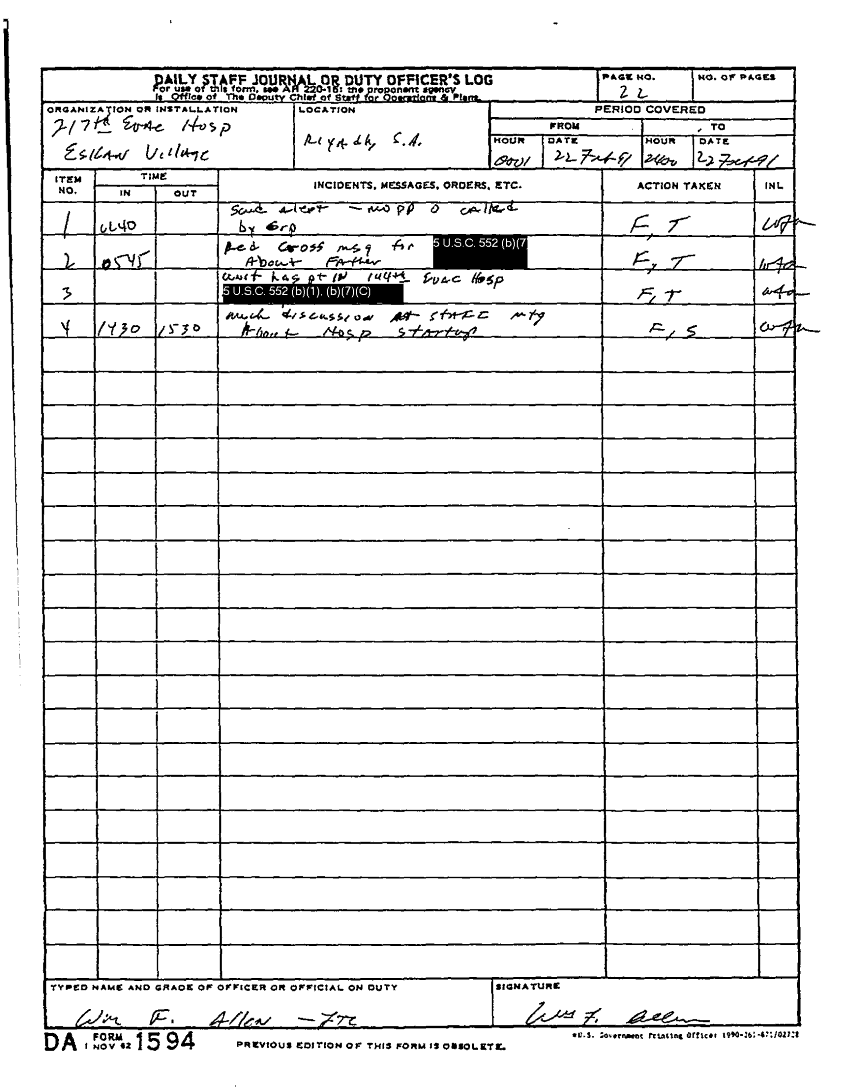 DAILY STAFF JOURNAL OR DUTY OFFICER'S LOG
For use of this form, see AR 220-15; the proponent agency
is Office of The Deputy Chief of Staff for Operations & Plans.
PAGE NO.
22
NO. OF PAGES
ORGANIZATION OR INSTALLATION
217th Evac Hosp
Eskan Village
LOCATION
Riyadh, S.A.
PERIOD COVERED
FROM
TO
HOUR
DATE
HOUR
DATE
0001
22 Feb 91
2400
22 Feb 91
ITEM NO.
TIME
IN
OUT
INCIDENTS, MESSAGES, ORDERS, ETC.
ACTION TAKEN
INL
1
alert - MOPP 0 called
by Grp
F, T
2
0545
Red Cross msg for
5 U.S.C. 552 (b)(7
About Father
F, T
3
unit has pt IN 144th Evac Hosp
5 U.S.C. 552 (b)(1), (b)(7)(C)
F, T
4
1430
1530
much discussion At staff mtg
About Hosp startup
F, S
TYPED NAME AND GRADE OF OFFICER OR OFFICIAL ON DUTY
Wm F. Allen
SIGNATURE
Wm F. Allen
DA FORM 1 NOV 62 1594
PREVIOUS EDITION OF THIS FORM IS OBSOLETE.
U.S. Government Printing Office: